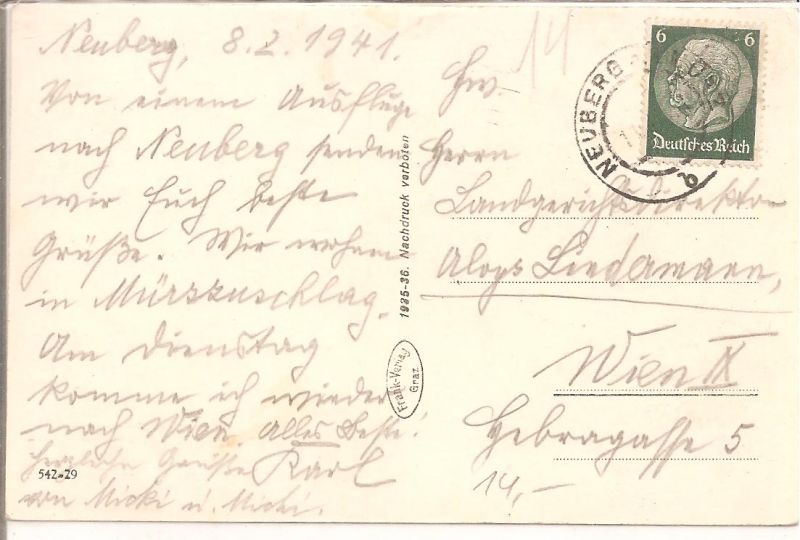 Neuberg, 8.2.1941.
Von einem Ausfluge
nach Neuberg senden
wir Euch beste
Grüße. Wir wohnen
in Mürzzuschlag.
Am Dienstag
komme ich wieder
nach Wien. Alles Beste!
Herzliche Grüße Karl
von Micki u. Micki.
542-29
1935-36. Nachdruck verboten
Frank-Verlag
Graz
14
6 6
Deutsches Reich
NEUBERG
Hw.
Herrn
Landgerichtsdirektor
Aloys Lindermann,
Wien IX
Hebragasse 5
14,-